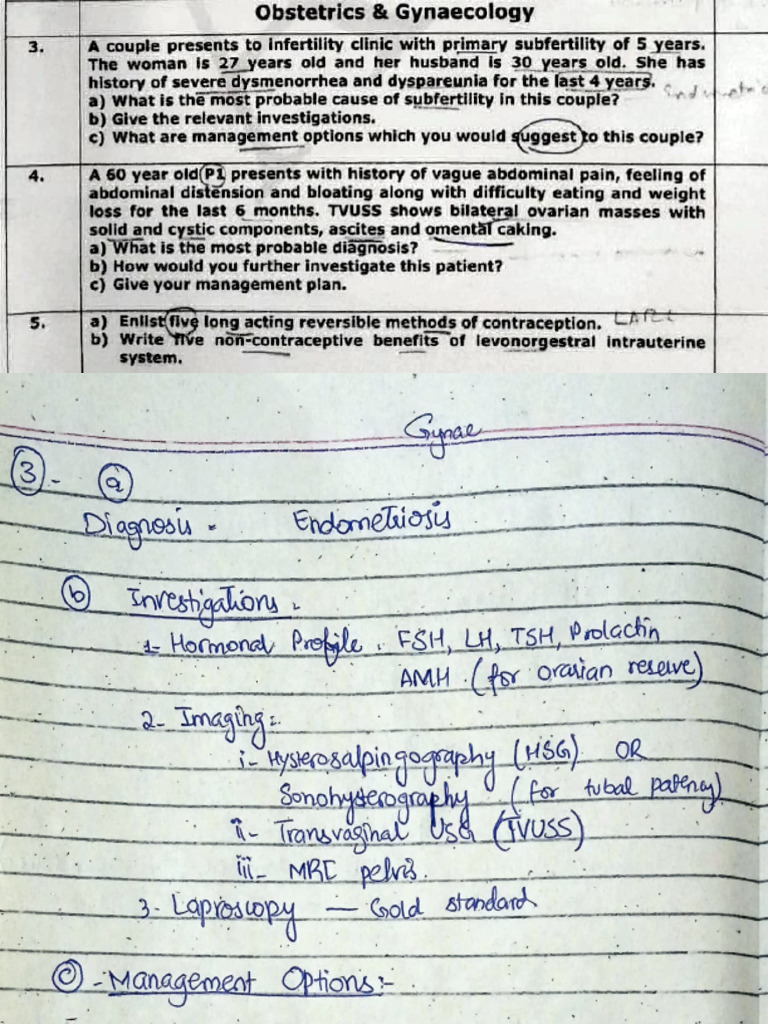 Obstetrics & Gynaecology
3. A couple presents to infertility clinic with primary subfertility of 5 years.
The woman is 27 years old and her husband is 30 years old. She has
history of severe dysmenorrhea and dyspareunia for the last 4 years.
a) What is the most probable cause of subfertility in this couple?
b) Give the relevant investigations.
c) What are management options which you would suggest to this couple?
4. A 60 year old P1 presents with history of vague abdominal pain, feeling of
abdominal distension and bloating along with difficulty eating and weight
loss for the last 6 months. TVUSS shows bilateral ovarian masses with
solid and cystic components, ascites and omental caking.
a) What is the most probable diagnosis?
b) How would you further investigate this patient?
c) Give your management plan.
5. a) Enlist five long acting reversible methods of contraception. LARC
b) Write five non-contraceptive benefits of levonorgestral intrauterine
system.
Gynae
3 - a
Diagnosis - Endometriosis
b Investigations :
1- Hormonal Profile . FSH, LH, TSH, Prolactin
AMH (for ovarian reserve)
2- Imaging :
i- Hysterosalpingography (HSG) OR
Sonohysterography (for tubal patency)
ii- Transvaginal USG (TVUSS)
iii- MRI pelvis.
3- Laproscopy — Gold standard
c - Management Options :-